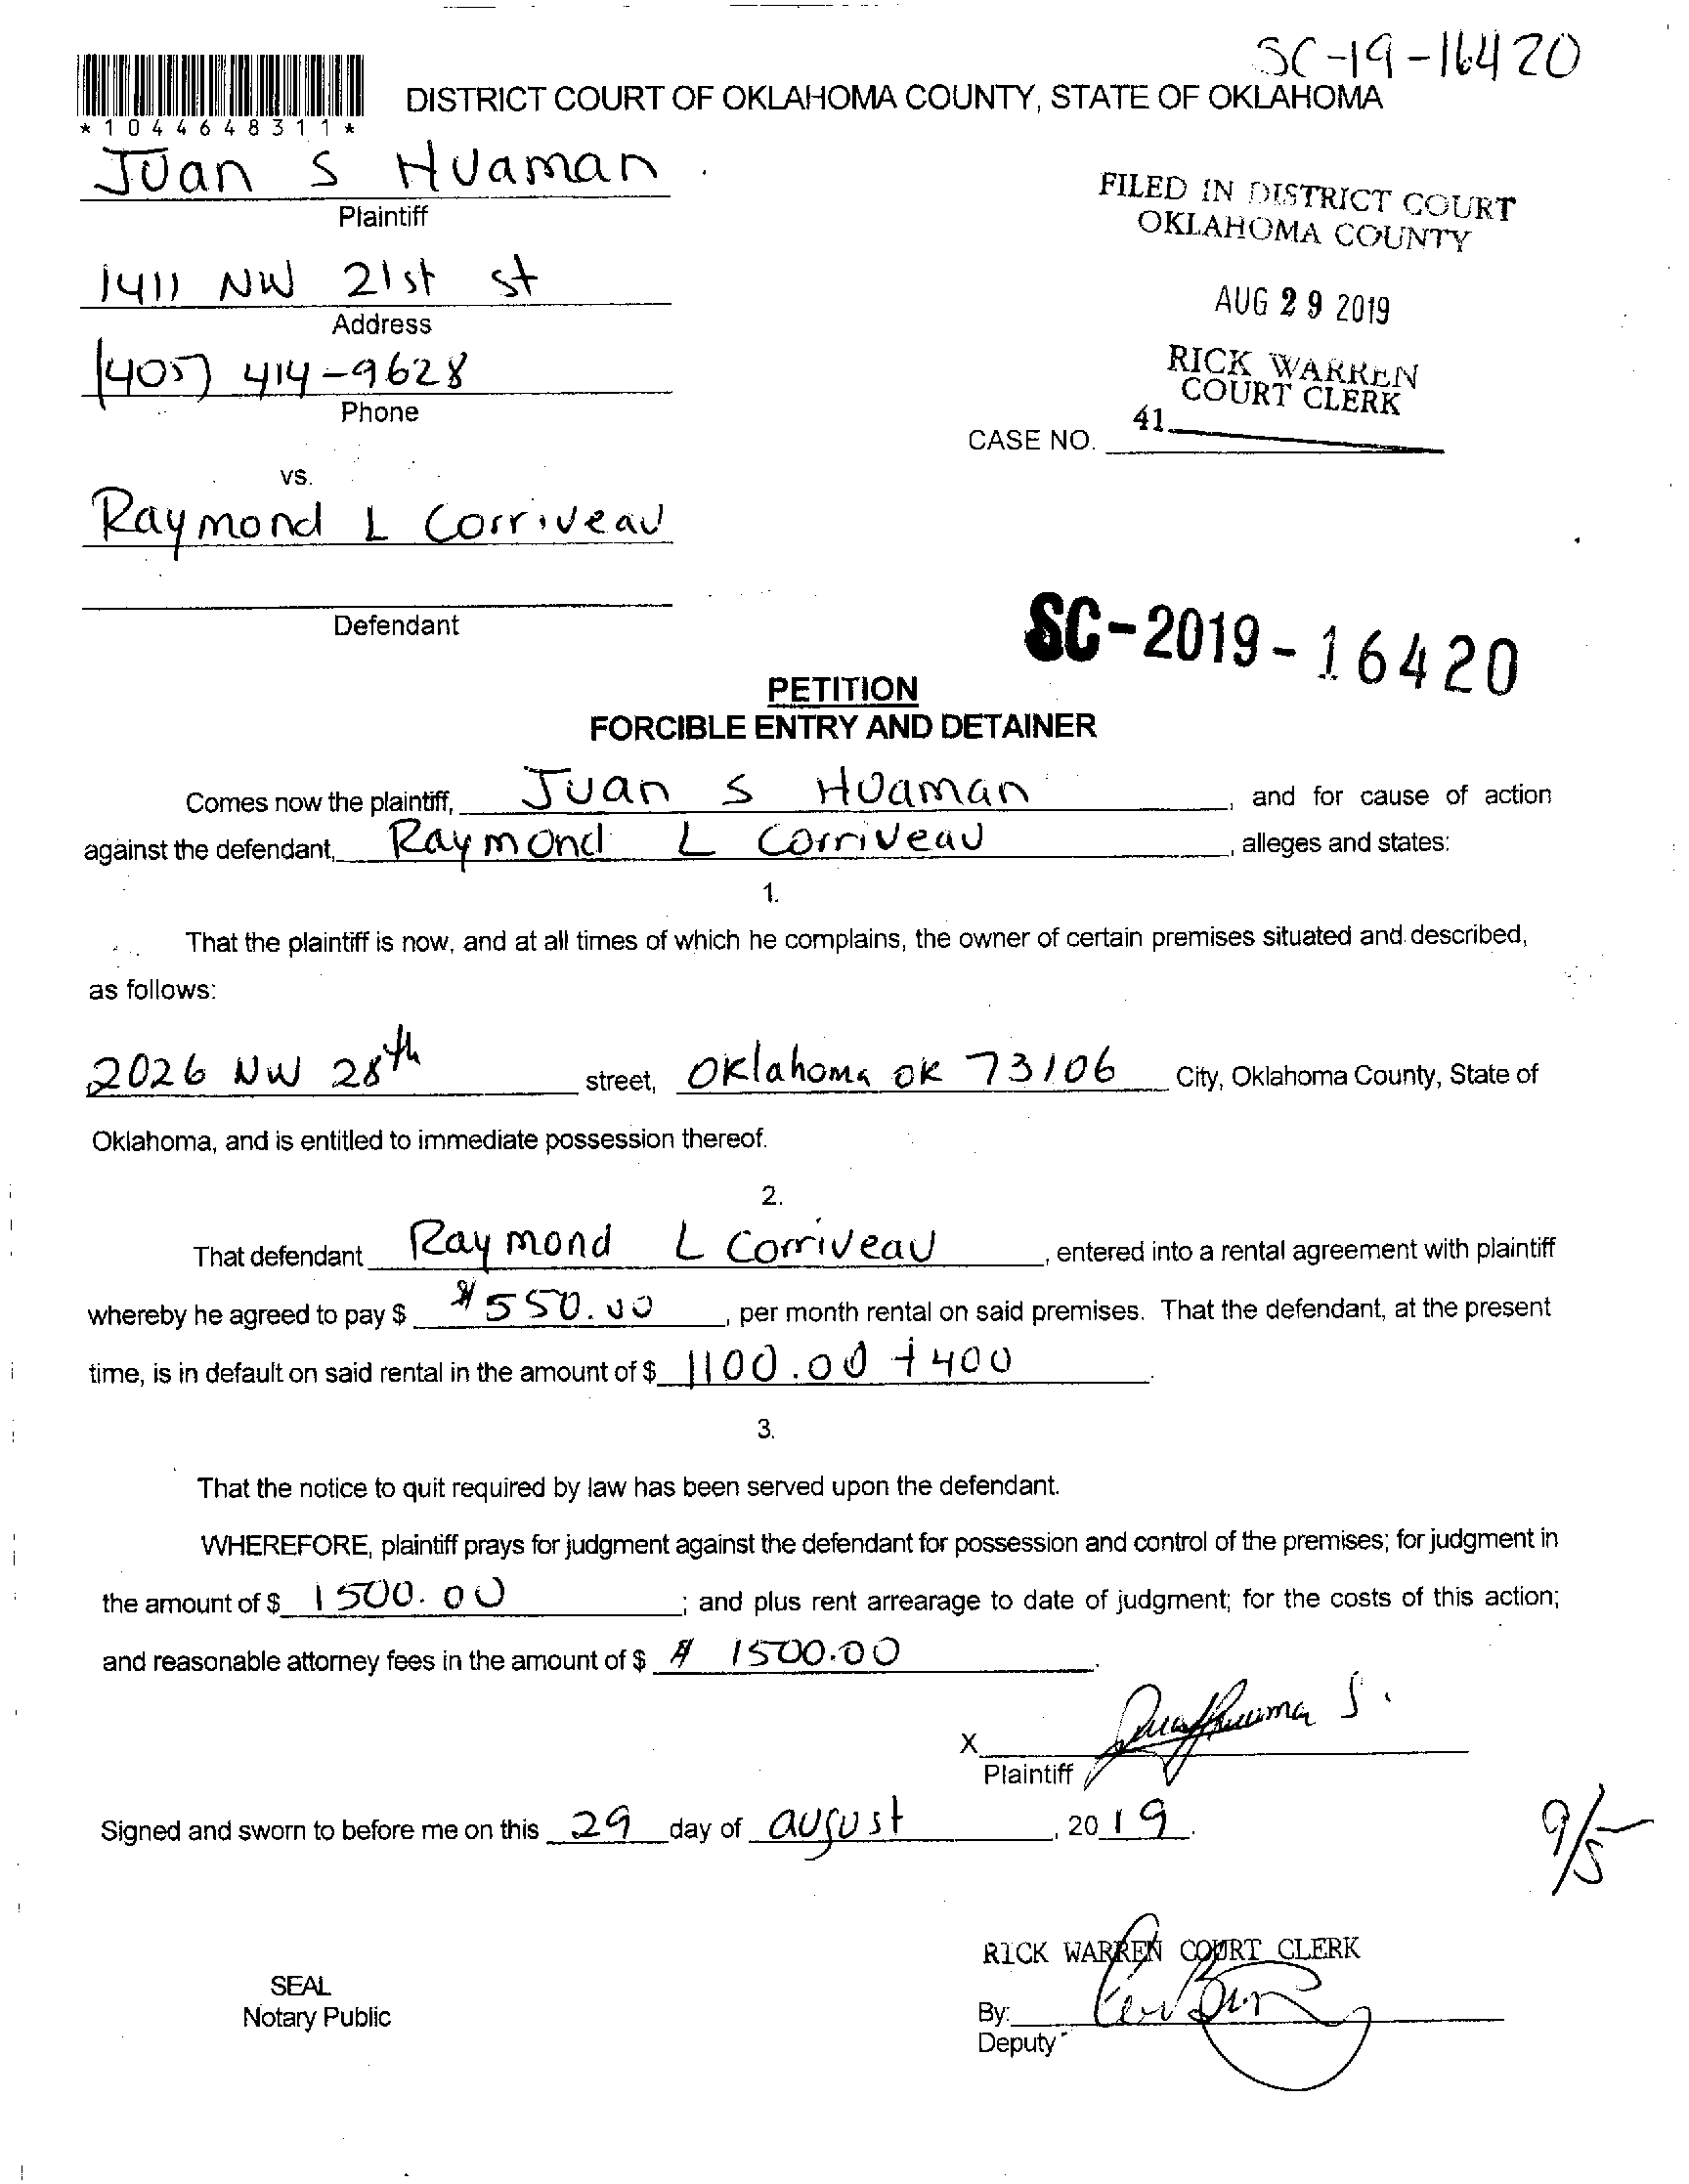 SC-19-16420
DISTRICT COURT OF OKLAHOMA COUNTY, STATE OF OKLAHOMA
*1044648311*
Juan S Huaman
Plaintiff
FILED IN DISTRICT COURT
OKLAHOMA COUNTY
1411 NW 21st st
Address
AUG 29 2019
(405) 414-9628
Phone
RICK WARREN
COURT CLERK
41
CASE NO.
vs.
Raymond L Corriveau
Defendant
SC-2019-16420
PETITION
FORCIBLE ENTRY AND DETAINER
Comes now the plaintiff, Juan S Huaman, and for cause of action
against the defendant, Raymond L Corriveau, alleges and states:
1.
That the plaintiff is now, and at all times of which he complains, the owner of certain premises situated and described,
as follows:
2026 NW 28th street, Oklahoma OK 73106 City, Oklahoma County, State of
Oklahoma, and is entitled to immediate possession thereof.
2.
That defendant Raymond L Corriveau, entered into a rental agreement with plaintiff
whereby he agreed to pay $ $550.00, per month rental on said premises. That the defendant, at the present
time, is in default on said rental in the amount of $ 1100.00 + 400.
3.
That the notice to quit required by law has been served upon the defendant.
WHEREFORE, plaintiff prays for judgment against the defendant for possession and control of the premises; for judgment in
the amount of $ 1500.00; and plus rent arrearage to date of judgment; for the costs of this action;
and reasonable attorney fees in the amount of $ $ 1500.00.
X
Plaintiff
Signed and sworn to before me on this 29 day of august, 2019.
9/5
RICK WARREN COURT CLERK
SEAL
Notary Public
By:
Deputy